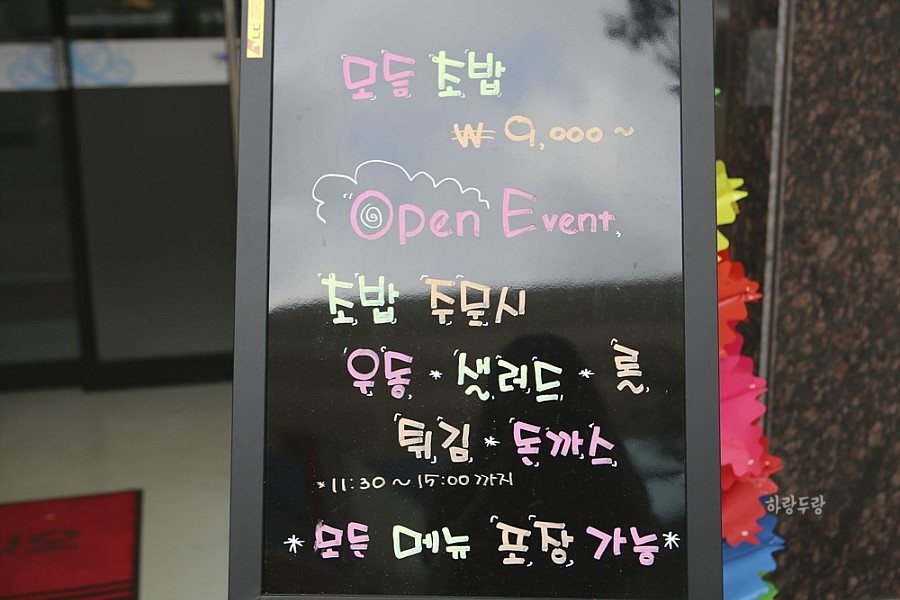 모듬 초밥
₩ 9,000 ~
Open Event,
초밥 주문시
우동 * 샐러드 * 롤
튀김 * 돈까스
*11:30 ~ 15:00 까지
* 모든 메뉴 포장 가능 *
하랑두랑